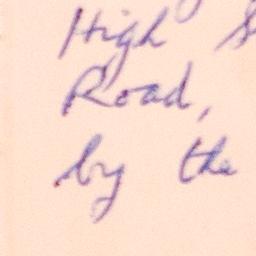 High
Road,
by the